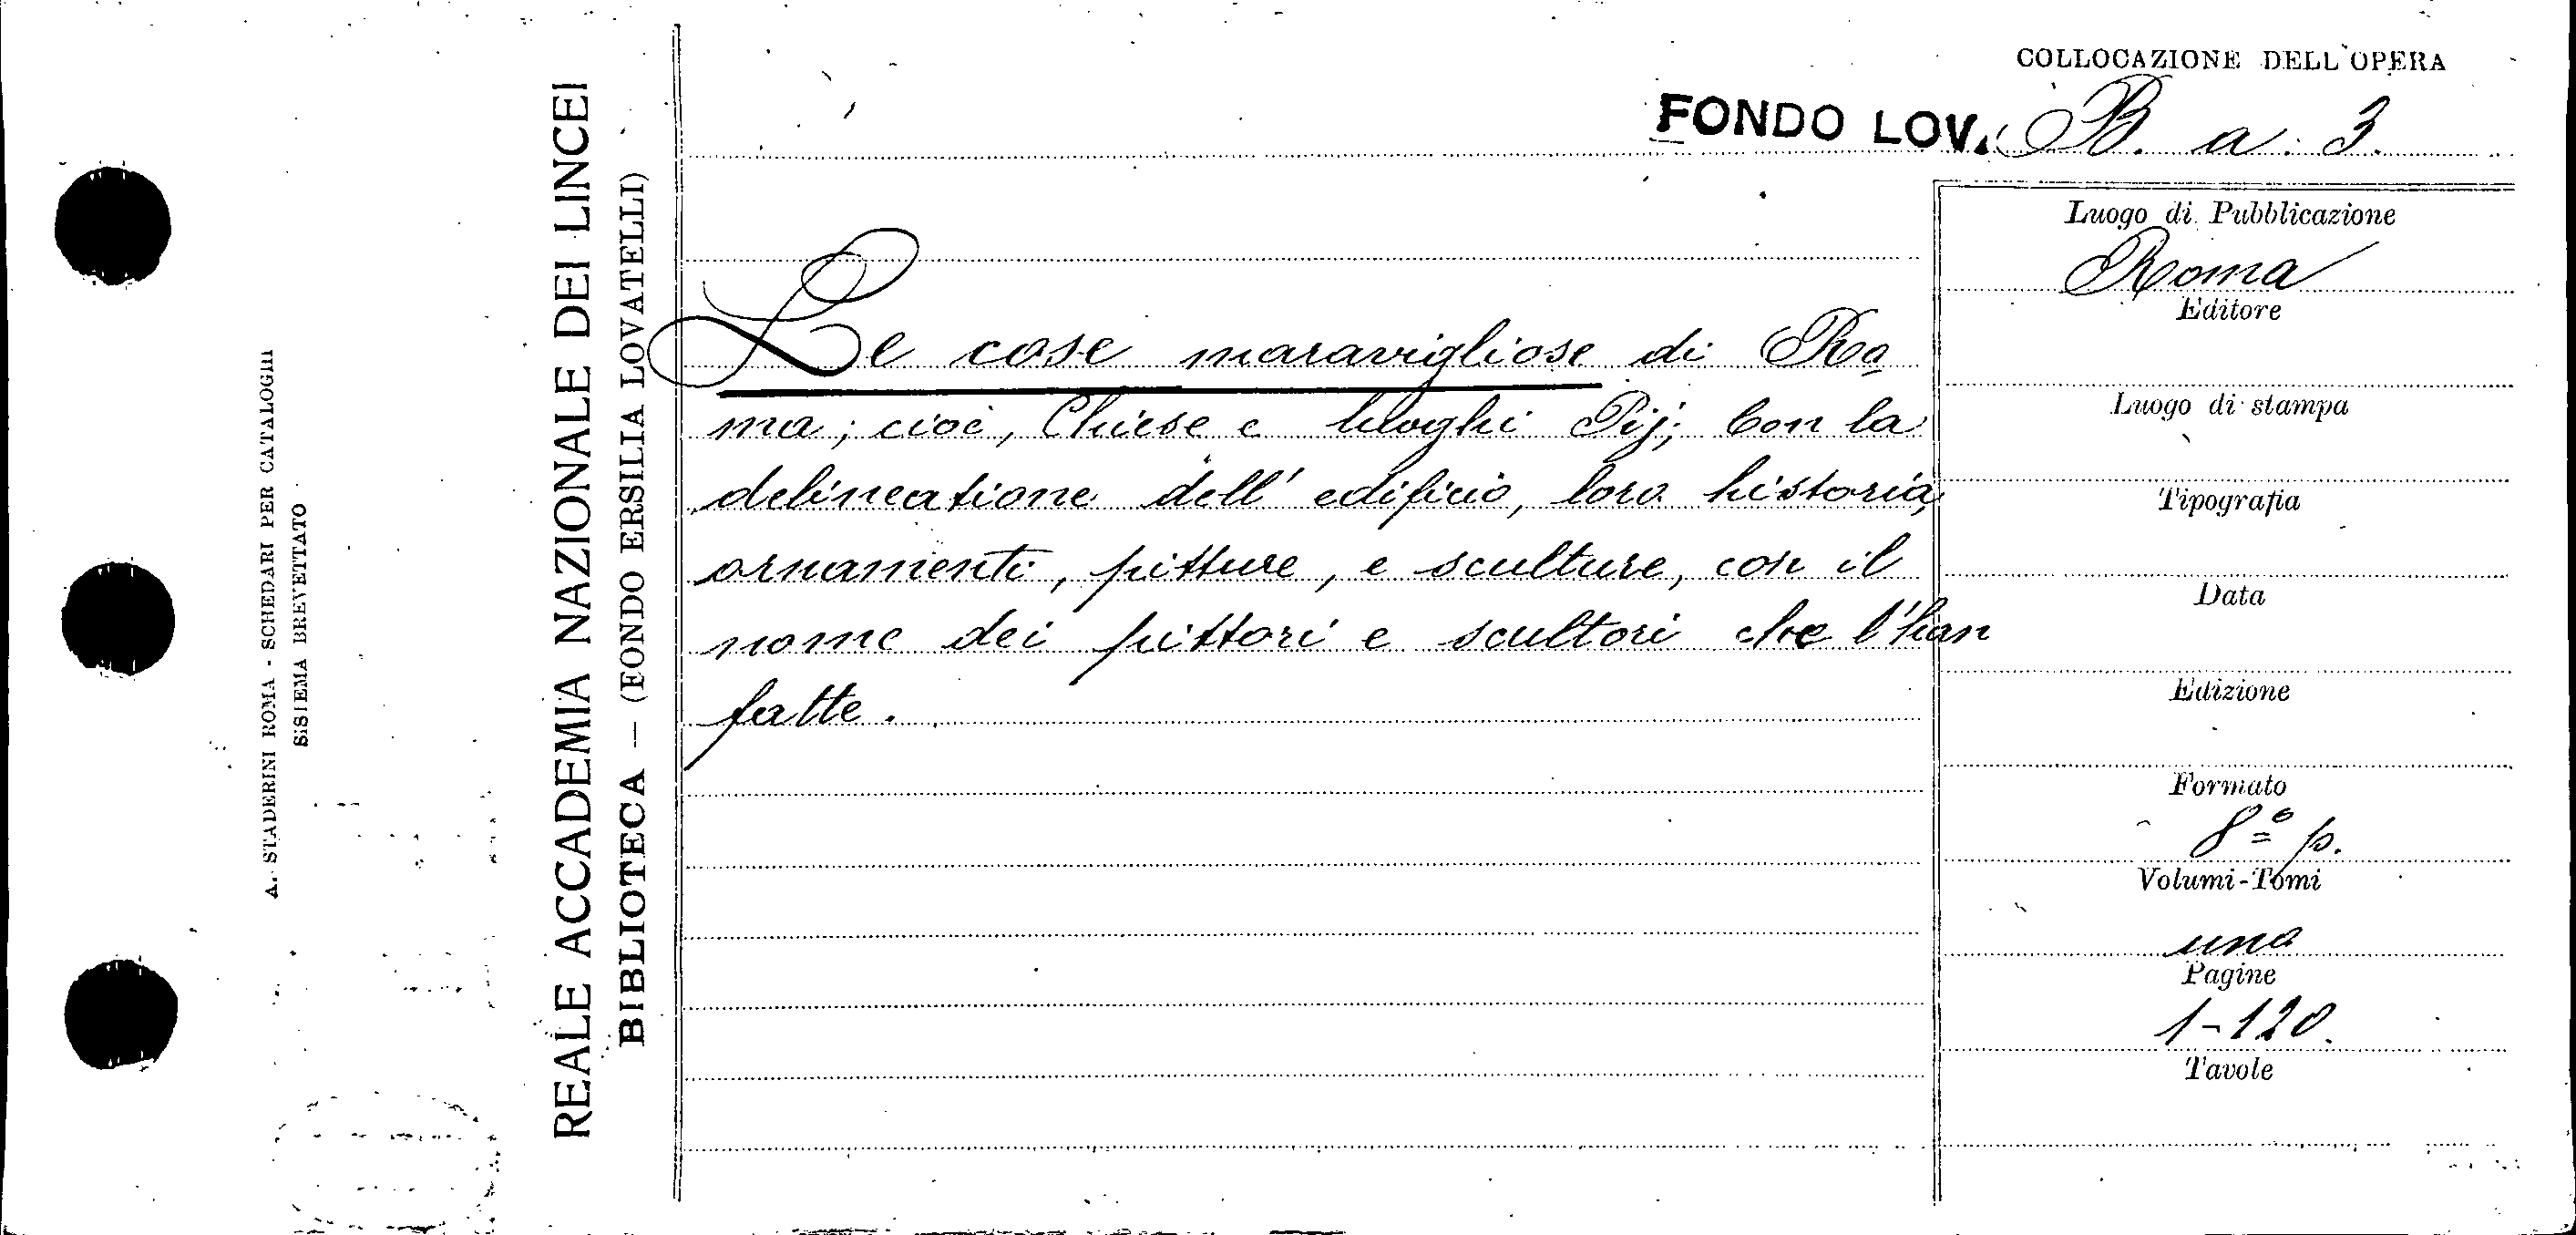 A. STADERINI ROMA - SCHEDARI PER CATALOGHI
SISTEMA BREVETTATO
REALE ACCADEMIA NAZIONALE DEI LINCEI
BIBLIOTECA — (FONDO ERSILIA LOVATELLI)
COLLOCAZIONE DELL'OPERA
FONDO LOV. B. a. 3.
Le cose maravigliose di Ro
ma; cioè, Chiese e luoghi Pij; Con la
delineatione dell' edificio, loro historia,
ornamenti, pitture, e sculture, con il
nome dei pittori e scultori che l'han
fatte.
Luogo di Pubblicazione
Roma
Editore
Luogo di stampa
Tipografia
Data
Edizione
Formato
8º p.
Volumi-Tomi
uno
Pagine
1-120.
Tavole